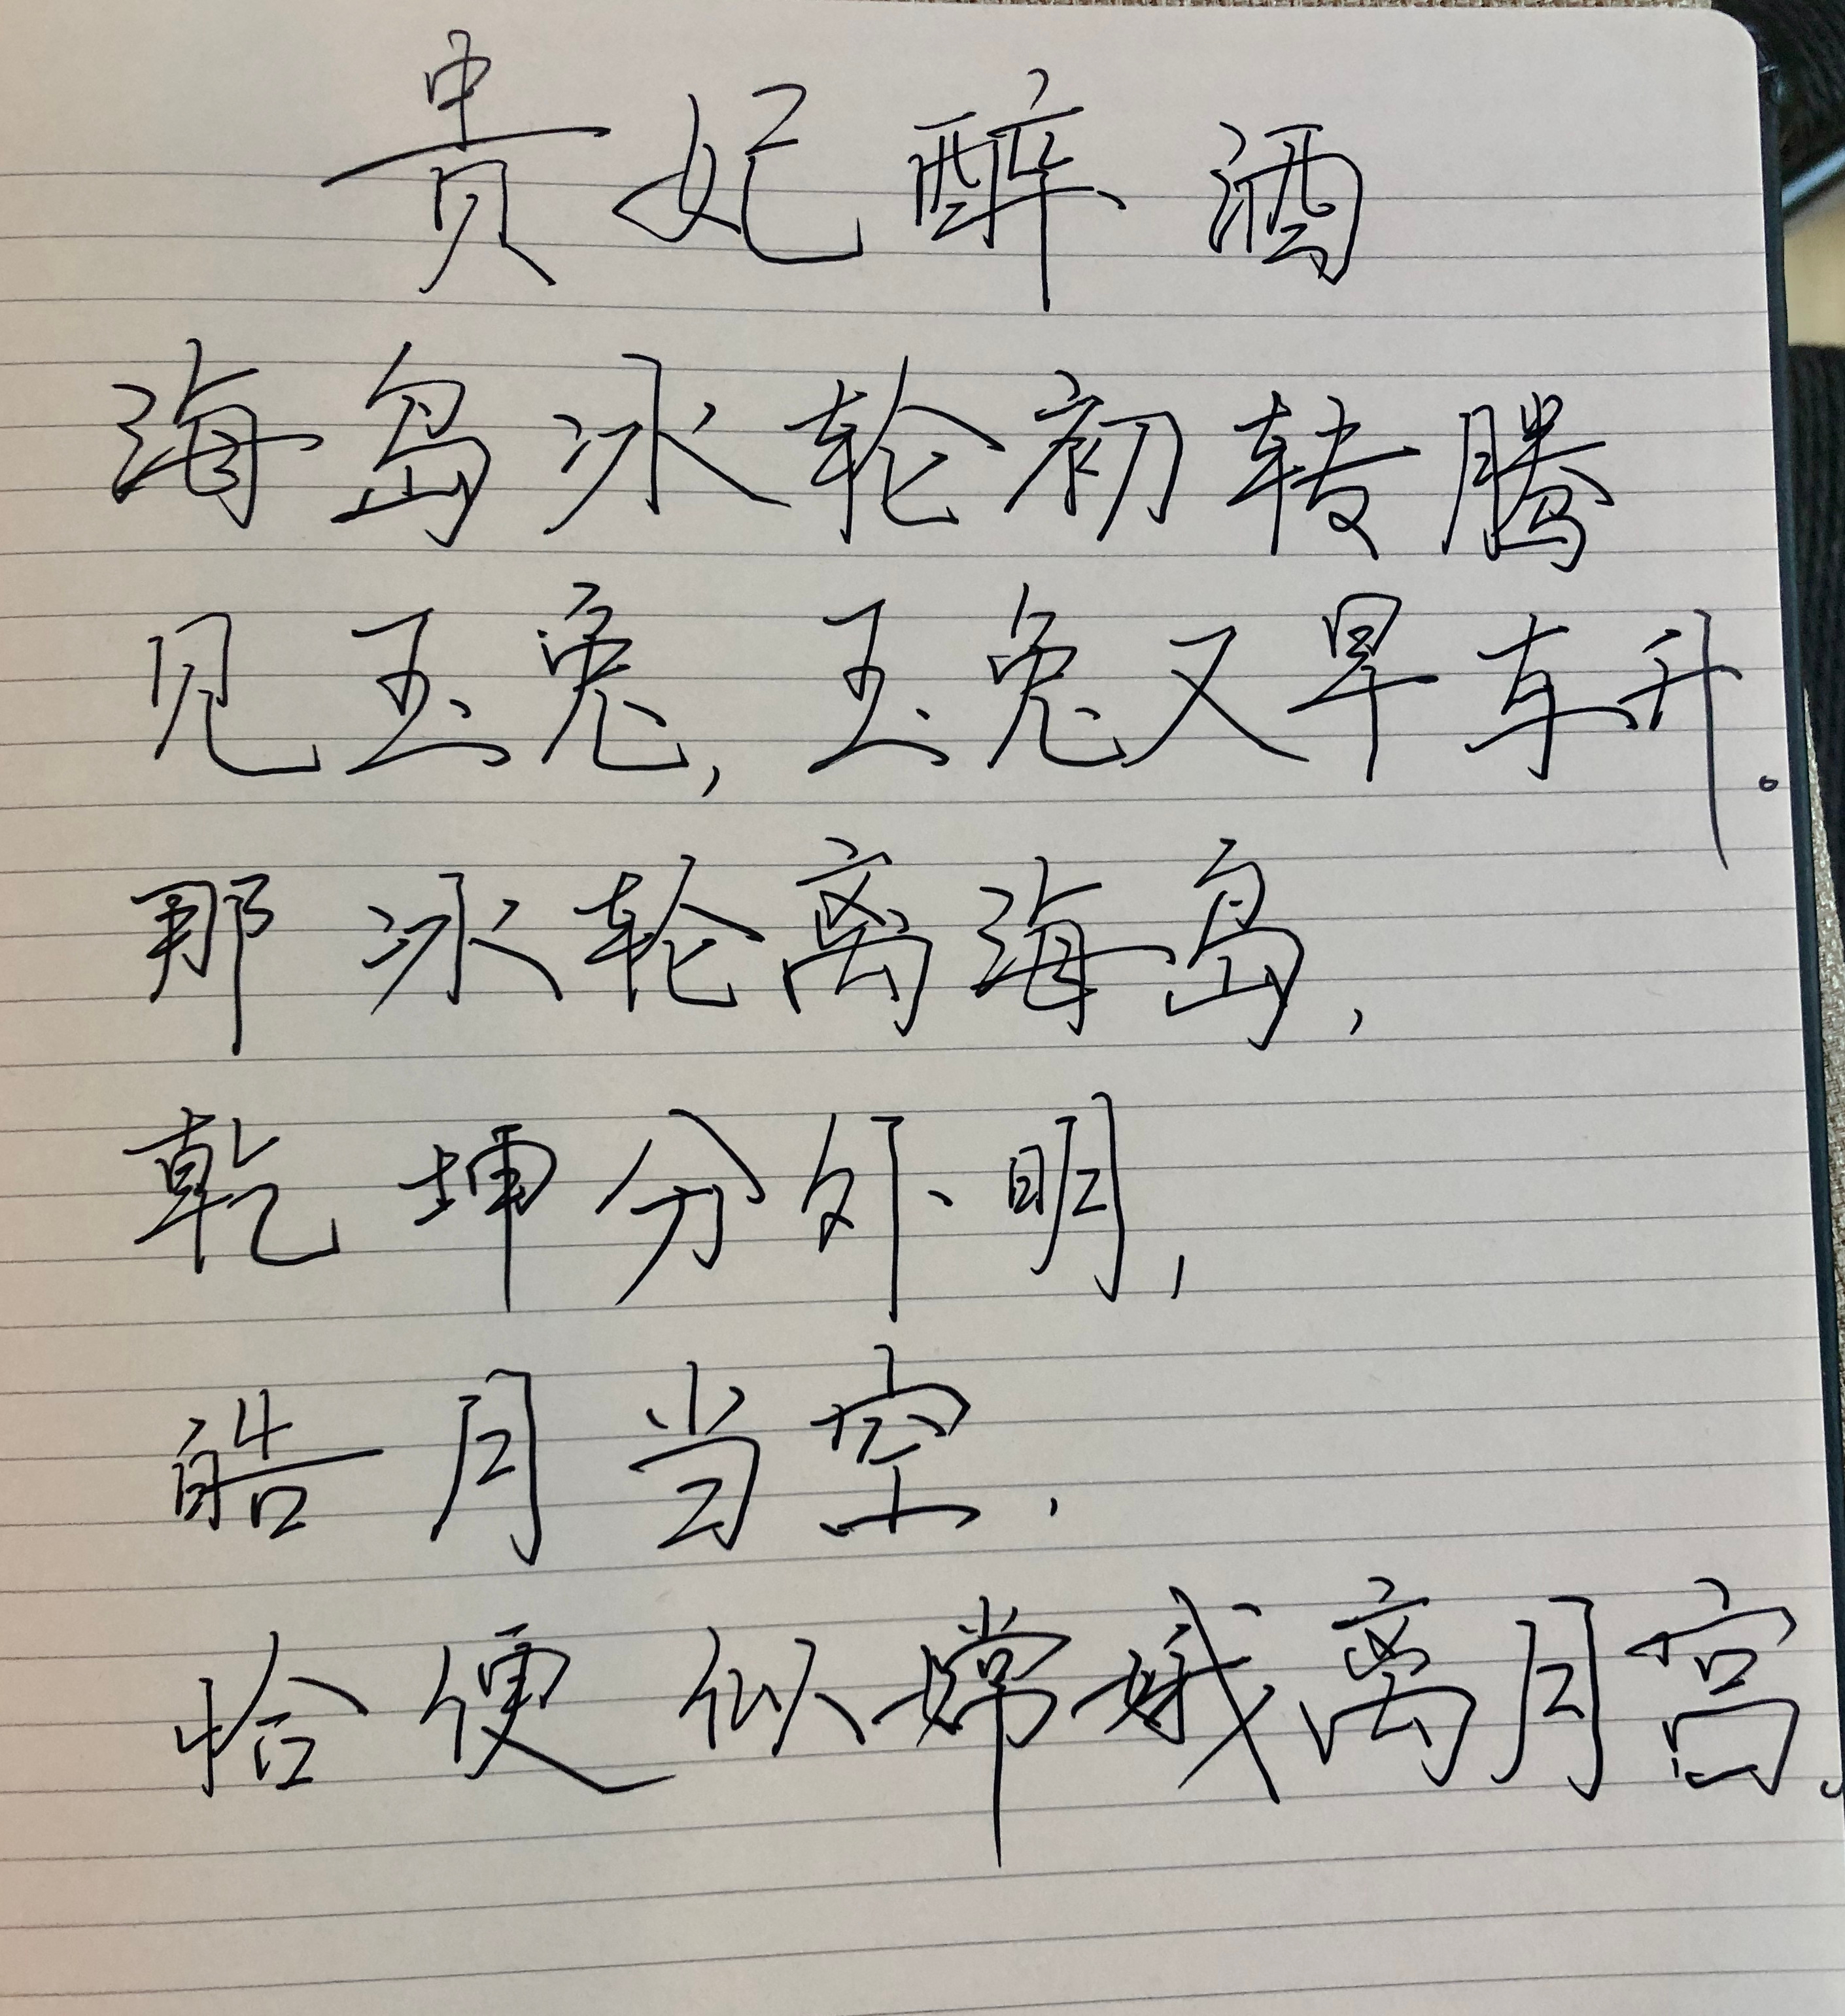 贵妃醉酒
海岛冰轮初转腾
见玉兔,玉兔又早东升。
那冰轮离海岛,
乾坤分外明,
皓月当空,
恰便似嫦娥离月宫。